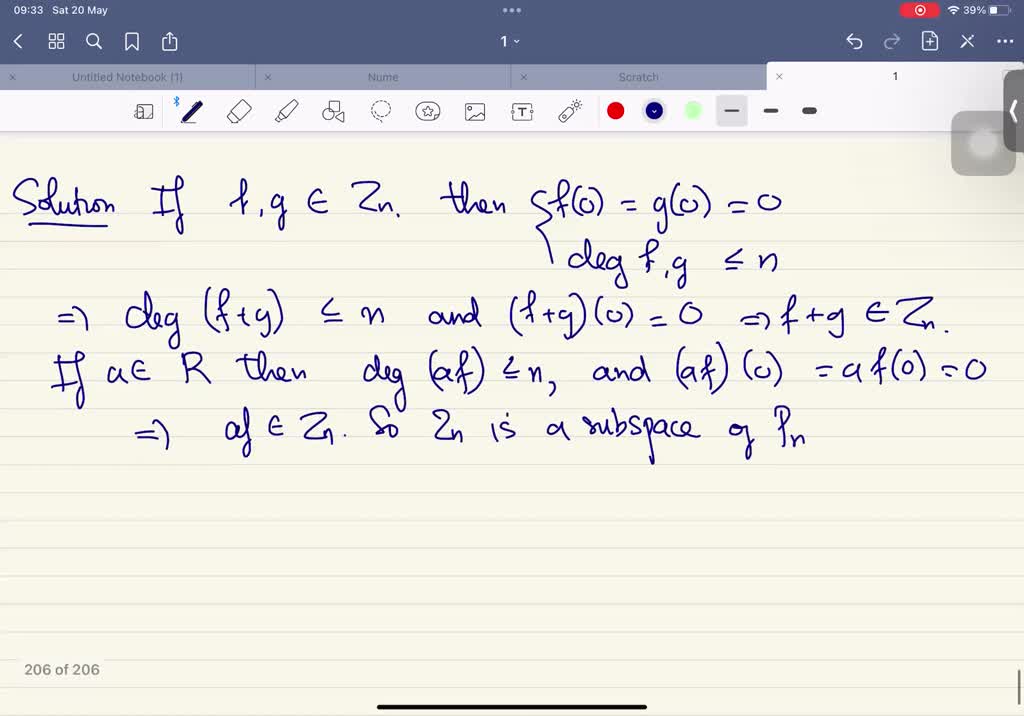 09:33 Sat 20 May
39%
1
Untitled Notebook (1)
Nume
Scratch
1
Solution If f, g ∈ Zn. then { f(0) = g(0) = 0
deg f, g ≤ n
⇒ deg (f+g) ≤ n and (f+g)(0) = 0 ⇒ f+g ∈ Zn.
If a ∈ R then deg (af) ≤ n, and (af)(0) = a f(0) = 0
⇒ af ∈ Zn. So Zn is a subspace of Pn
206 of 206